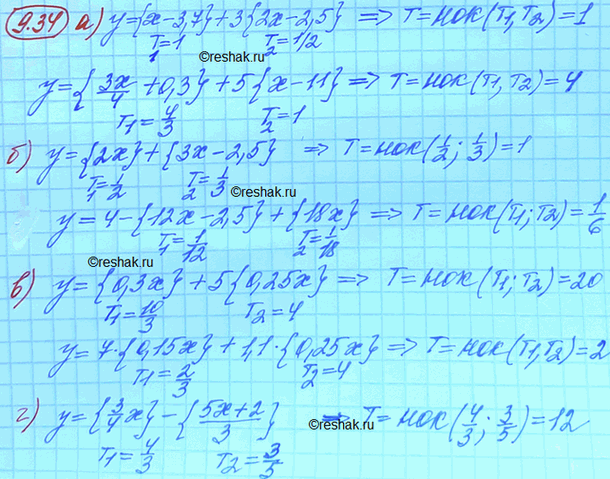 9.34 а) y={x-3,7}+3{2x-2,5} => T=нок(T1,T2)=1
T1=1 T2=1/2
©reshak.ru
y={3x/4+0,3}+5{x-11} => T=нок(T1,T2)=4
T1=4/3 T2=1
б) y={2x}+{3x-2,5} => T=нок(1/2;1/3)=1
T1=1/2 T2=1/3
©reshak.ru
y=4-{12x-2,5}+{18x} => T=нок(T1;T2)=1/6
T1=1/12 T2=1/18
©reshak.ru
в) y={0,3x}+5{0,25x} => T=нок(T1;T2)=20
T1=10/3 T2=4
y=7·{0,15x}+1,1·{0,25x} => T=нок(T1,T2)=2
T1=2/3 T2=4
г) y={3/4x}-{5x+2/3} => T=нок(4/3;3/5)=12
©reshak.ru
T1=4/3 T2=3/5